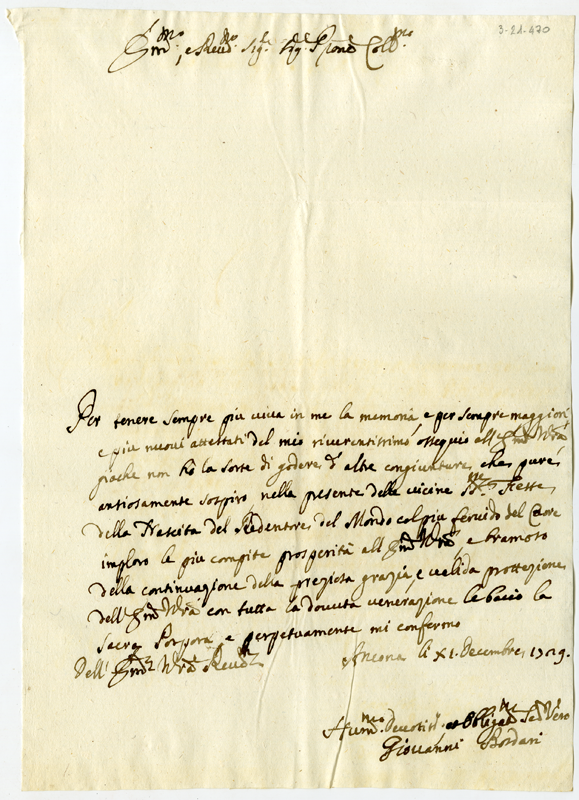 3-21-470
Em.mo, e Reud.mo Sig.re Sig.re Prone Coll.mo
Per tenere sempre piu viva in me la memoria e per sempre maggiori
e piu nuovi attestati del mio riverentissimo osseguio all Em.a Vra
poiche non hò la sorte di godere d'altre congiunture, che pure
antiosamente sospiro nella presente delle vicine S.me Feste
della Nascita del Redentore del Mondo col piu fervido del Cuore
imploro le piu compite prosperità all Em.a Vra e bramoso
della continuazione della preziosa grazia e valida prottezione
dell Em.a Vra con tutta la dovuta venerazione le bacio la
Sacra Porpora e perpetuamente mi confermo
Dell' Em.a Vra Reud.ma
Ancona li XI. Decembre 1729.
Hum.mo Devotis.o et Obligat.mo Se Vero
Giovanni Bordari